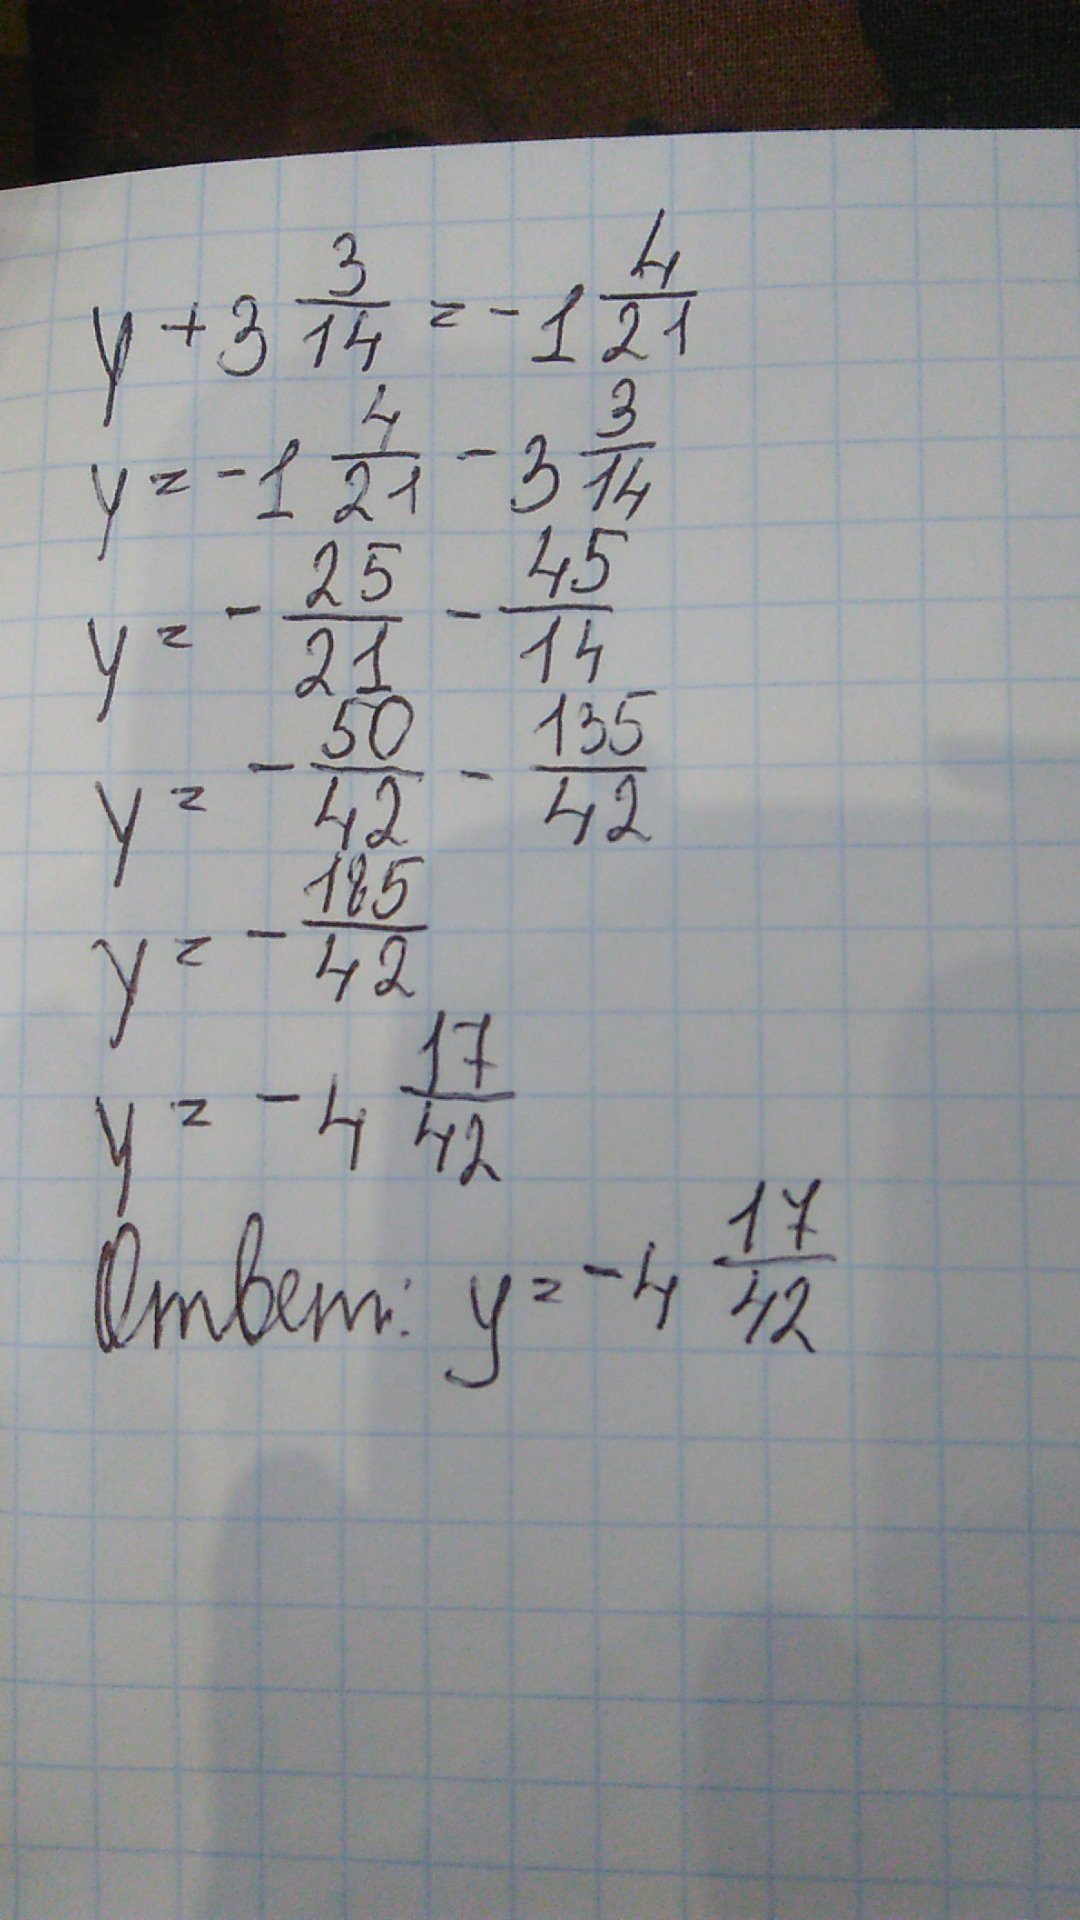 y + 3 3/14 = -1 4/21
y = -1 4/21 - 3 3/14
y = - 25/21 - 45/14
y = - 50/42 - 135/42
y = - 185/42
y = -4 17/42
Ответ: y = -4 17/42